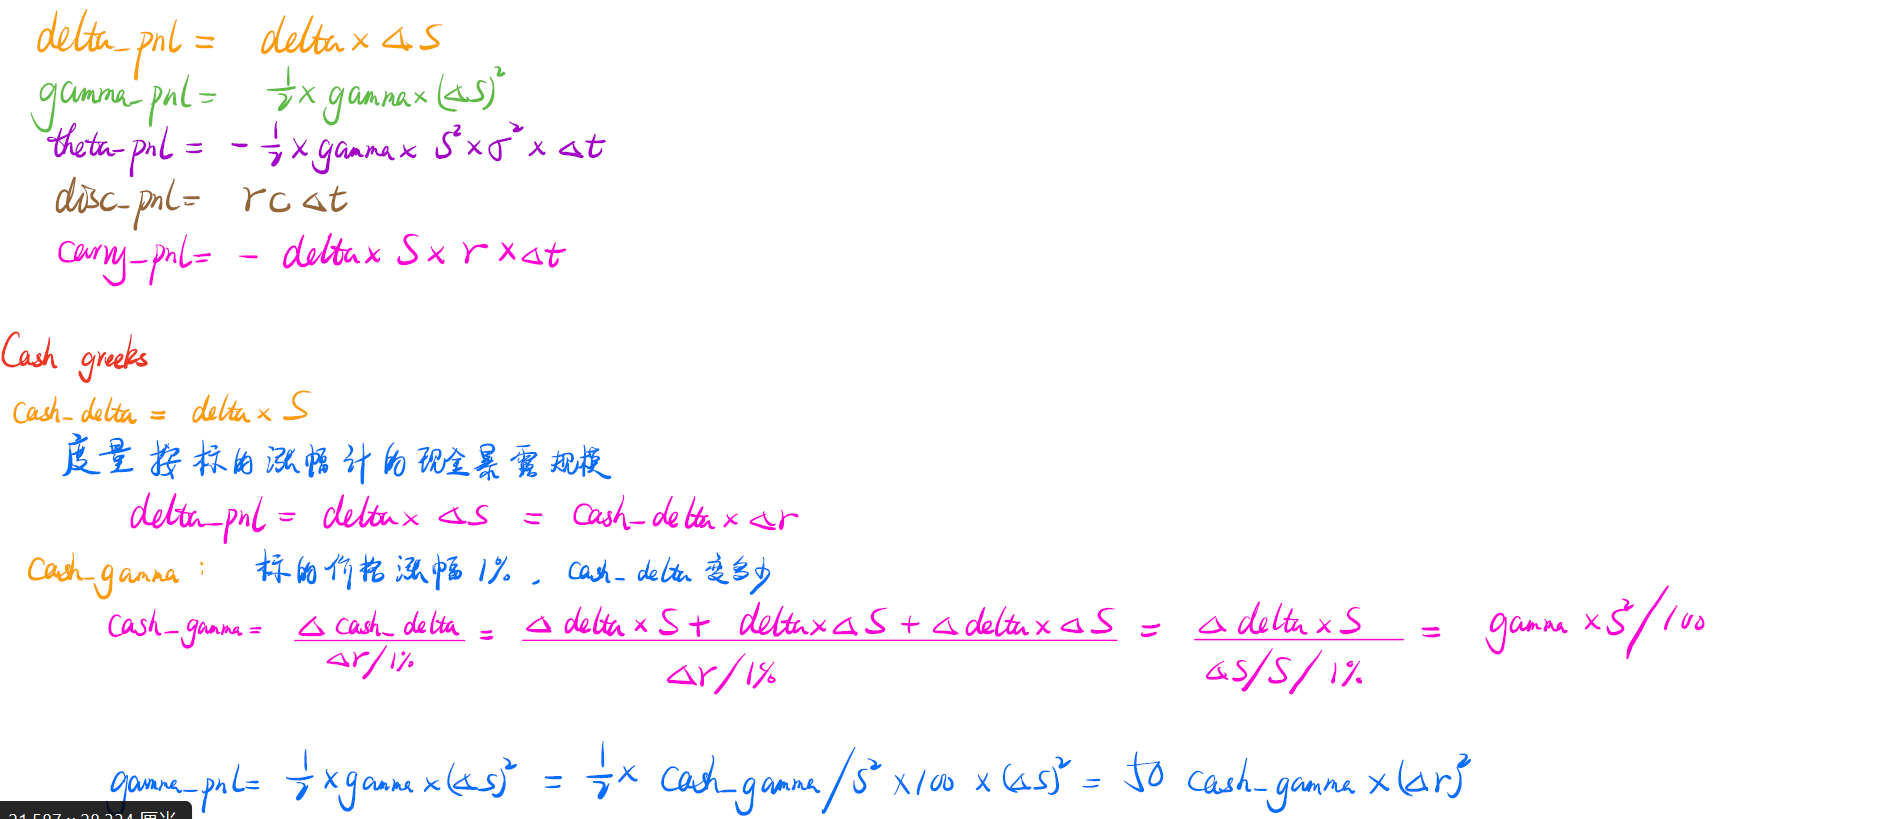 delta_pnl = delta × ΔS
gamma_pnl = 1/2 × gamma × (ΔS)²
theta_pnl = - 1/2 × gamma × S² × σ² × Δt
disc_pnl = rcΔt
carry_pnl = - delta × S × r × Δt
Cash greeks
cash_delta = delta × S
度量按标的涨幅计的现金暴露规模
delta_pnl = delta × ΔS = cash_delta × Δr
Cash_gamma : 标的价格涨幅1%, cash_delta变多少
cash_gamma = Δ cash_delta / (Δr/1%) = (Δ delta × S + delta × ΔS + Δ delta × ΔS) / (Δr/1%) = (Δ delta × S) / (ΔS/S/1%) = gamma × S²/100
gamma_pnl = 1/2 × gamma × (ΔS)² = 1/2 × cash_gamma/S² × 100 × (ΔS)² = 50 cash_gamma × (Δr)²